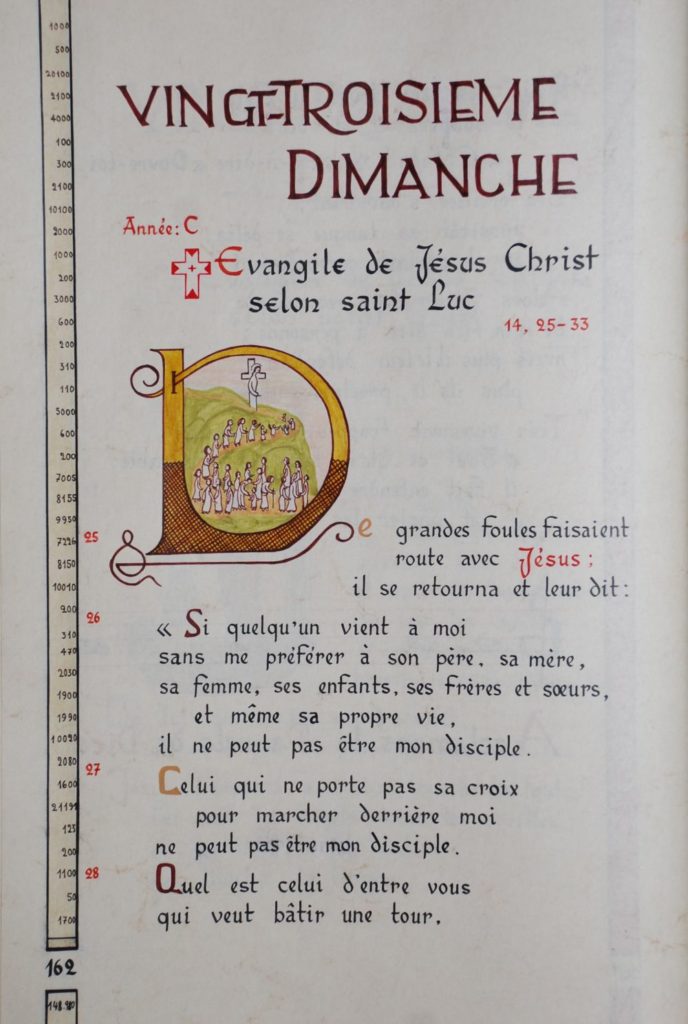 VINGT-TROISIEME
DIMANCHE
Année: C
Evangile de Jésus Christ
selon saint Luc
14, 25-33
25 De grandes foules faisaient
route avec Jésus ;
il se retourna et leur dit :
26 « Si quelqu'un vient à moi
sans me préférer à son père, sa mère,
sa femme, ses enfants, ses frères et sœurs,
et même sa propre vie,
il ne peut pas être mon disciple.
27 Celui qui ne porte pas sa croix
pour marcher derrière moi
ne peut pas être mon disciple.
28 Quel est celui d'entre vous
qui veut bâtir une tour,
1000
500
20100
2100
4000
100
300
2100
10100
2000
1000
200
3000
600
200
310
110
3000
600
200
7005
8155
9950
7226
8150
10010
200
310
470
2030
1900
1990
10020
2080
1600
21191
125
200
1100
50
1700
162